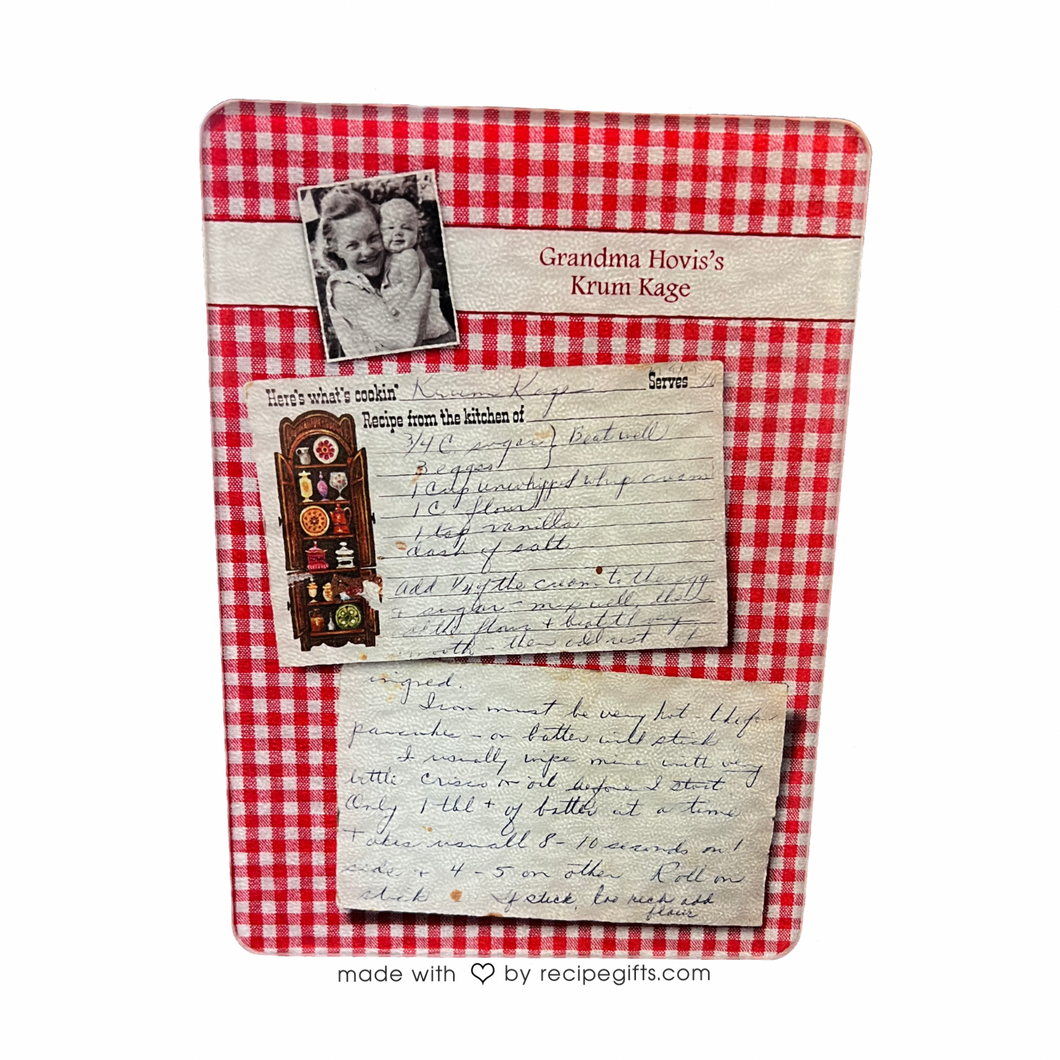 Grandma Hovis's
Krum Kage
Here's what's cookin' Krum Kage Serves
Recipe from the kitchen of
3/4 C sugar } Beat well
3 eggs
1 Cup unwhipped whip cream
1 C flour
1 tsp vanilla
dash of salt
add 1/4 of the cream to the egg
+ sugar - mix well, then
flour + beat very
smooth - then add rest of
ingred.
Iron must be very hot -
pancake - or batter will stick
I usually wipe mine with very
little Crisco or oil before I start
Only 1 tbl + of batter at a time
takes usuall 8 - 10 seconds on 1
side + 4 - 5 on other Roll on
stick If stick, too rich add
flour
made with ♡ by recipegifts.com